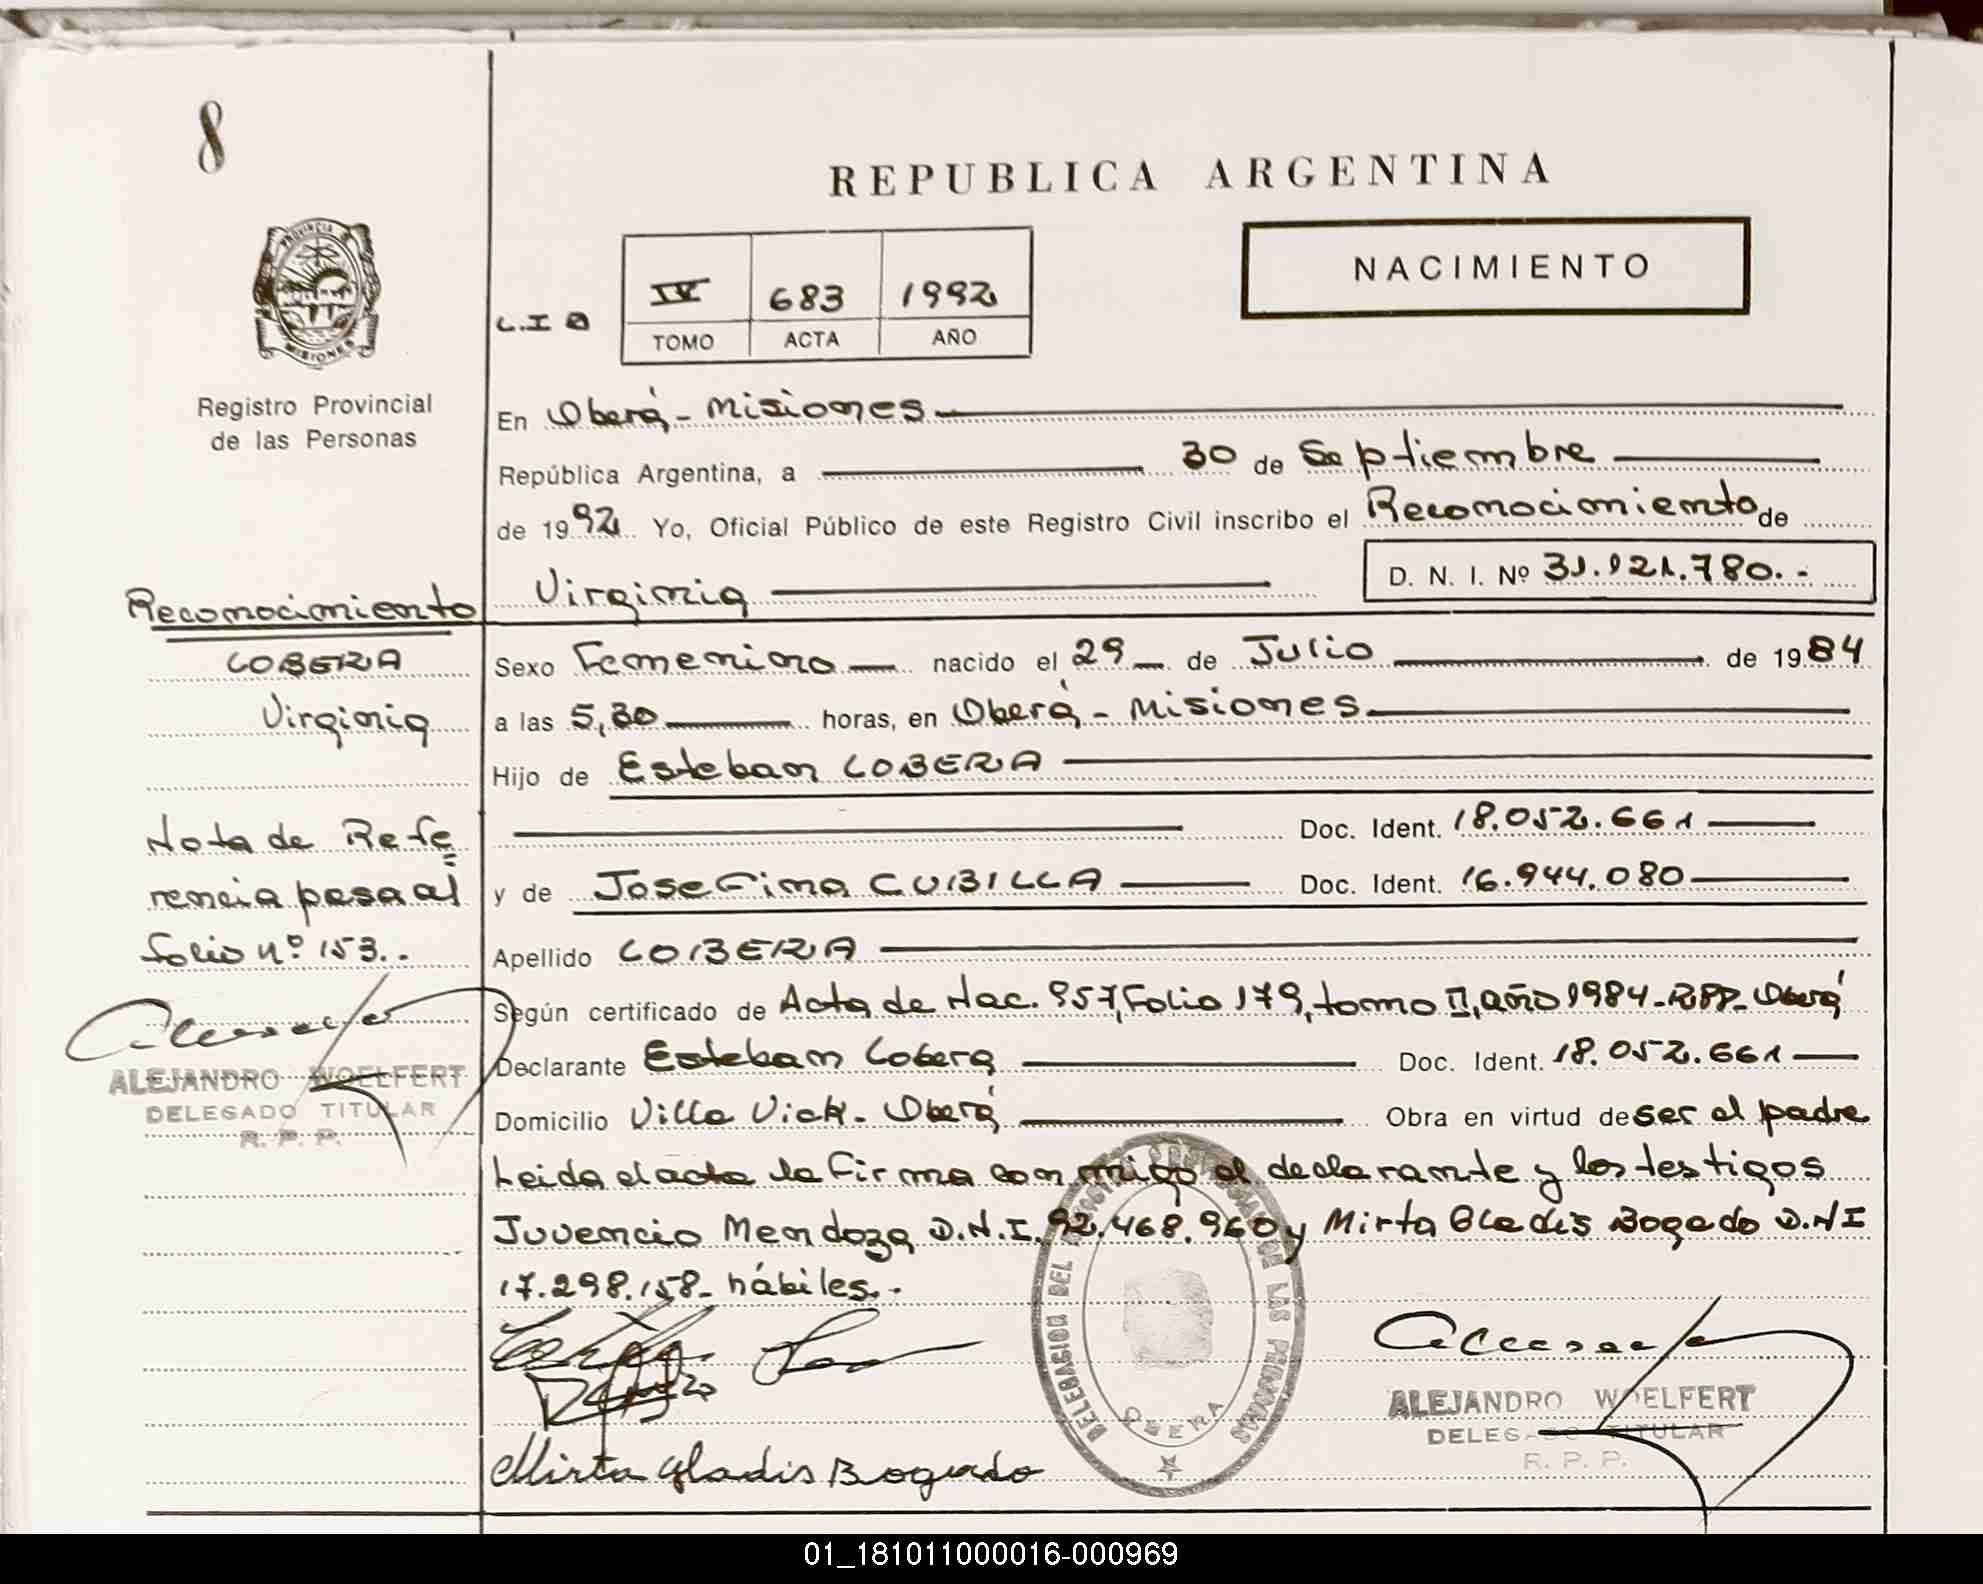 8
REPUBLICA ARGENTINA
PROVINCIA DE
MISIONES
NACIMIENTO
IV 683 1992
L.I
TOMO ACTA AÑO
Registro Provincial
de las Personas
En Oberá - Misiones
República Argentina, a 30 de Septiembre
de 1992 Yo, Oficial Público de este Registro Civil inscribo el Reconocimiento de
D. N. I. Nº 31.121.780.-
Virginia
Reconocimiento
LOBERA
Virginia
Sexo Femenino nacido el 29 de Julio de 1984
a las 5,30 horas, en Oberá - Misiones
Hijo de Esteban LOBERA
Doc. Ident. 18.052.661
y de Josefina CUBILLA Doc. Ident. 16.944.080
Nota de Refe
rencia pasa al
folio nº 153..
Apellido LOBERA
Según certificado de Acta de Nac. 957, Folio 179, tomo II, año 1984 - RPP - Oberá
Declarante Esteban Lobera Doc. Ident. 18.052.661
Domicilio Villa Vick - Oberá Obra en virtud de ser el padre
Leida el acta la firma con migo el declarante y los testigos
Juvencio Mendoza D.N.I. 92.468.960 y Mirta Gladis Bogado D.N.I
17.298.158 - hábiles.-
ALEJANDRO WOELFERT
DELEGADO TITULAR
R. P. P.
DELEGACION DEL REGISTRO PROVINCIAL DE LAS PERSONAS
OBERA
Mirta Gladis Bogado
ALEJANDRO WOELFERT
DELEGADO TITULAR
R. P. P.
01_181011000016-000969